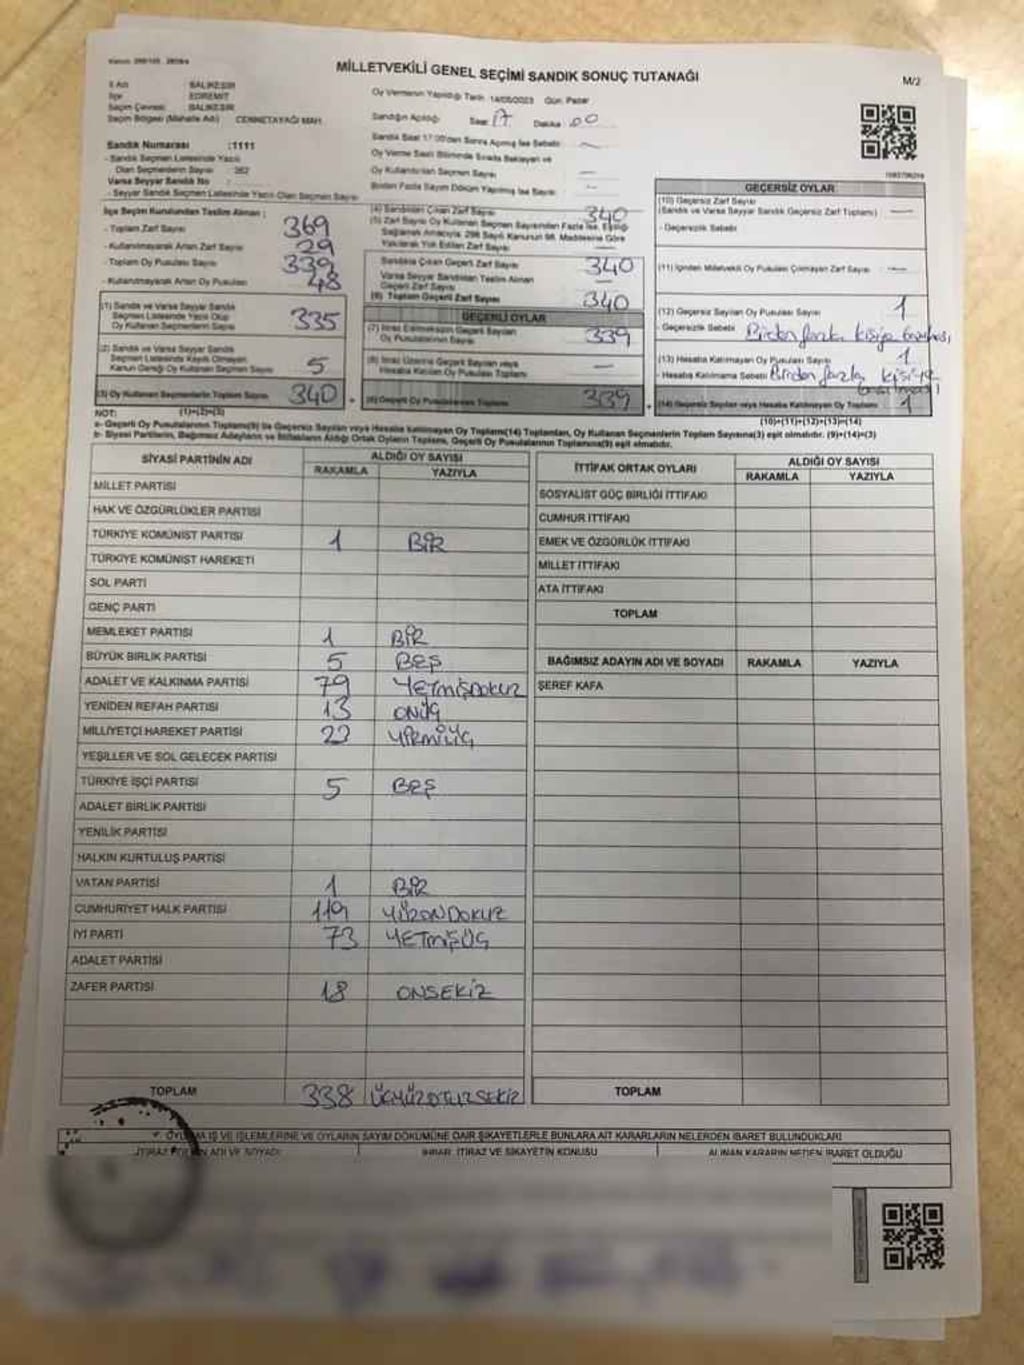 MİLLETVEKİLİ GENEL SEÇİMİ SANDIK SONUÇ TUTANAĞI
M/2
İl Adı : BALIKESİR
İlçe : EDREMİT
Seçim Çevresi : BALIKESİR
Seçim Bölgesi (Mahalle Adı) CENNETAYAĞI MAH.
Oy Vermenin Yapıldığı Tarih 14/05/2023 Gün: Pazar
Sandığın Açıldığı Saat 17 Dakika 00
Sandık Saat 17:00'den Sonra Açılmış İse Sebebi
Oy Verme Saati Bitiminde Sırada Bekleyen ve
Oy Kullandırılan Seçmen Sayısı
Birden Fazla Sayım Döküm Yapılmış İse Sayısı
Sandık Numarası :1111
- Sandık Seçmen Listesinde Yazılı
Olan Seçmenlerin Sayısı
Varsa Seyyar Sandık No
- Seyyar Sandık Seçmen Listesinde Yazılı Olan Seçmen Sayısı
İlçe Seçim Kurulundan Teslim Alınan :
- Toplam Zarf Sayısı 369
- Kullanılmayarak Artan Zarf Sayısı 29
- Toplam Oy Pusulası Sayısı
- Kullanılmayarak Artan Oy Pusulası 48
(1) Sandık ve Varsa Seyyar Sandık
Seçmen Listesinde Yazılı Olup
Oy Kullanan Seçmenlerin Sayısı 335
(2) Sandık ve Varsa Seyyar Sandık
Seçmen Listesinde Kayıtlı Olmayan
Kanun Gereği Oy Kullanan Seçmen Sayısı 5
(3) Oy Kullanan Seçmenlerin Toplam Sayısı 340
(4) Sandıktan Çıkan Zarf Sayısı 340
(5) Zarf Sayısı Oy Kullanan Seçmen Sayısından Fazla İse, Eşitliği
Sağlamak Amacıyla, 298 Sayılı Kanunun 98. Maddesine Göre
Yakılarak Yok Edilen Zarf Sayısı
Sandıkta Çıkan Geçerli Zarf Sayısı 340
Varsa Seyyar Sandıktan Teslim Alınan
Geçerli Zarf Sayısı
(6) Toplam Geçerli Zarf Sayısı 340
GEÇERLİ OYLAR
(7) İtiraz Edilmeksizin Geçerli Sayılan
Oy Pusulalarının Sayısı 339
(8) İtiraz Üzerine Geçerli Sayılan veya
Hesaba Katılan Oy Pusulası Toplamı
(9) Geçerli Oy Pusulalarının Toplamı 339
GEÇERSİZ OYLAR
(10) Geçersiz Zarf Sayısı
(Sandık ve Varsa Seyyar Sandık Geçersiz Zarf Toplamı)
- Geçersizlik Sebebi
(11) İçinden Milletvekili Oy Pusulası Çıkmayan Zarf Sayısı
(12) Geçersiz Sayılan Oy Pusulası Sayısı 1
- Geçersizlik Sebebi Birden fazla kişiye
(13) Hesaba Katılmayan Oy Pusulası Sayısı 1
- Hesaba Katılmama Sebebi Birden fazla kişiye
(14) Geçersiz Sayılan veya Hesaba Katılmayan Oy Toplamı 1
NOT: (1)+(2)=(3) (10)+(11)+(12)+(13)=(14)
a- Geçerli Oy Pusulalarının Toplamı(9) ile Geçersiz Sayılan veya Hesaba Katılmayan Oy Toplamı(14) Toplamları, Oy Kullanan Seçmenlerin Toplam Sayısına(3) eşit olmalıdır. (9)+(14)=(3)
b- Siyasi Partilerin, Bağımsız Adayların ve İttifakların Aldığı Ortak Oyların Toplamı, Geçerli Oy Pusulalarının Toplamına(9) eşit olmalıdır.
SİYASİ PARTİNİN ADI ALDIĞI OY SAYISI
RAKAMLA YAZIYLA
MİLLET PARTİSİ
HAK VE ÖZGÜRLÜKLER PARTİSİ
TÜRKİYE KOMÜNİST PARTİSİ 1 BİR
TÜRKİYE KOMÜNİST HAREKETİ
SOL PARTİ
GENÇ PARTİ
MEMLEKET PARTİSİ 1 BİR
BÜYÜK BİRLİK PARTİSİ 5 BEŞ
ADALET VE KALKINMA PARTİSİ 79 YETMİŞDOKUZ
YENİDEN REFAH PARTİSİ 13 ONÜÇ
MİLLİYETÇİ HAREKET PARTİSİ 23 YİRMİÜÇ
YEŞİLLER VE SOL GELECEK PARTİSİ
TÜRKİYE İŞÇİ PARTİSİ 5 BEŞ
ADALET BİRLİK PARTİSİ
YENİLİK PARTİSİ
HALKIN KURTULUŞ PARTİSİ
VATAN PARTİSİ 1 BİR
CUMHURİYET HALK PARTİSİ 119 YÜZONDOKUZ
İYİ PARTİ 73 YETMİŞÜÇ
ADALET PARTİSİ
ZAFER PARTİSİ 18 ONSEKİZ
TOPLAM 338 ÜÇYÜZOTUZSEKİZ
İTTİFAK ORTAK OYLARI ALDIĞI OY SAYISI
RAKAMLA YAZIYLA
SOSYALİST GÜÇ BİRLİĞİ İTTİFAKI
CUMHUR İTTİFAKI
EMEK VE ÖZGÜRLÜK İTTİFAKI
MİLLET İTTİFAKI
ATA İTTİFAKI
TOPLAM
BAĞIMSIZ ADAYIN ADI VE SOYADI RAKAMLA YAZIYLA
ŞEREF KAFA
TOPLAM
İŞ VE İŞLEMLERİNE VE OYLARIN SAYIM DÖKÜMÜNE DAİR ŞİKAYETLERLE BUNLARA AİT KARARLARIN NELERDEN İBARET BULUNDUKLARI
ADI VE SOYADI İHBAR, İTİRAZ VE ŞİKAYETİN KONUSU ALINAN KARARIN NEDEN İBARET OLDUĞU